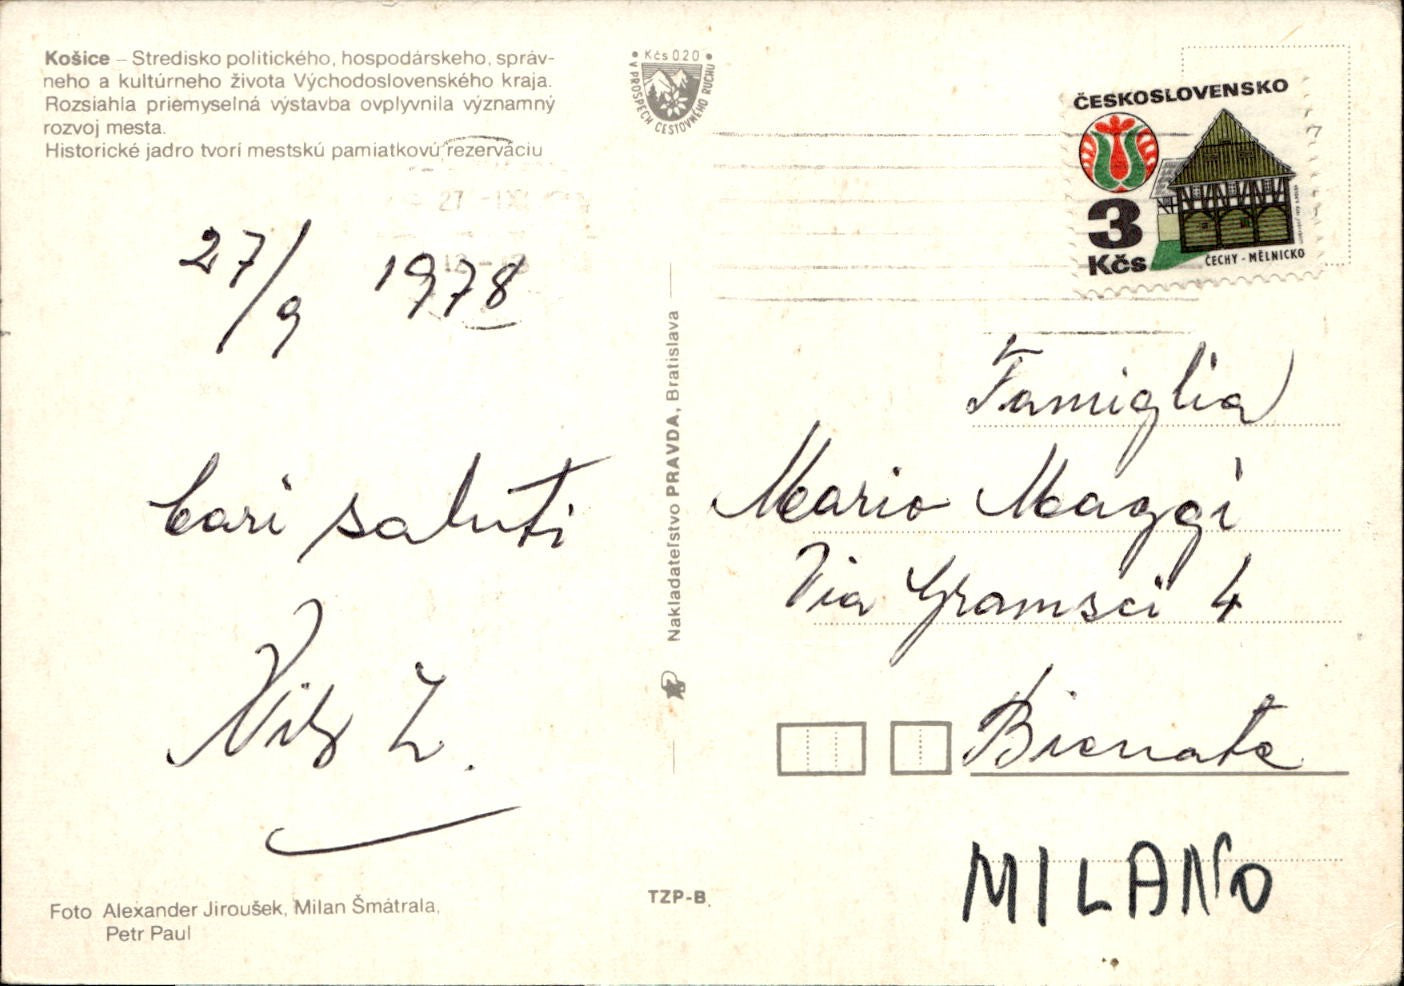 Košice – Stredisko politického, hospodárskeho, správ-
neho a kultúrneho života Východoslovenského kraja.
Rozsiahla priemyselná výstavba ovplyvnila významný
rozvoj mesta.
Historické jadro tvorí mestskú pamiatkovú rezerváciu
Kčs 0.20
V PROSPECH CESTOVNÉHO RUCHU
ČESKOSLOVENSKO
3
Kčs
ČECHY - MĚLNICKO
27 - IX
27/9 1978
Cari saluti
Foto Alexander Jiroušek, Milan Šmátrala,
Petr Paul
Nakladateľstvo PRAVDA, Bratislava
TZP-B
Famiglia
Mario Maggi
Via Gramsci 4
Bienate
MILANO